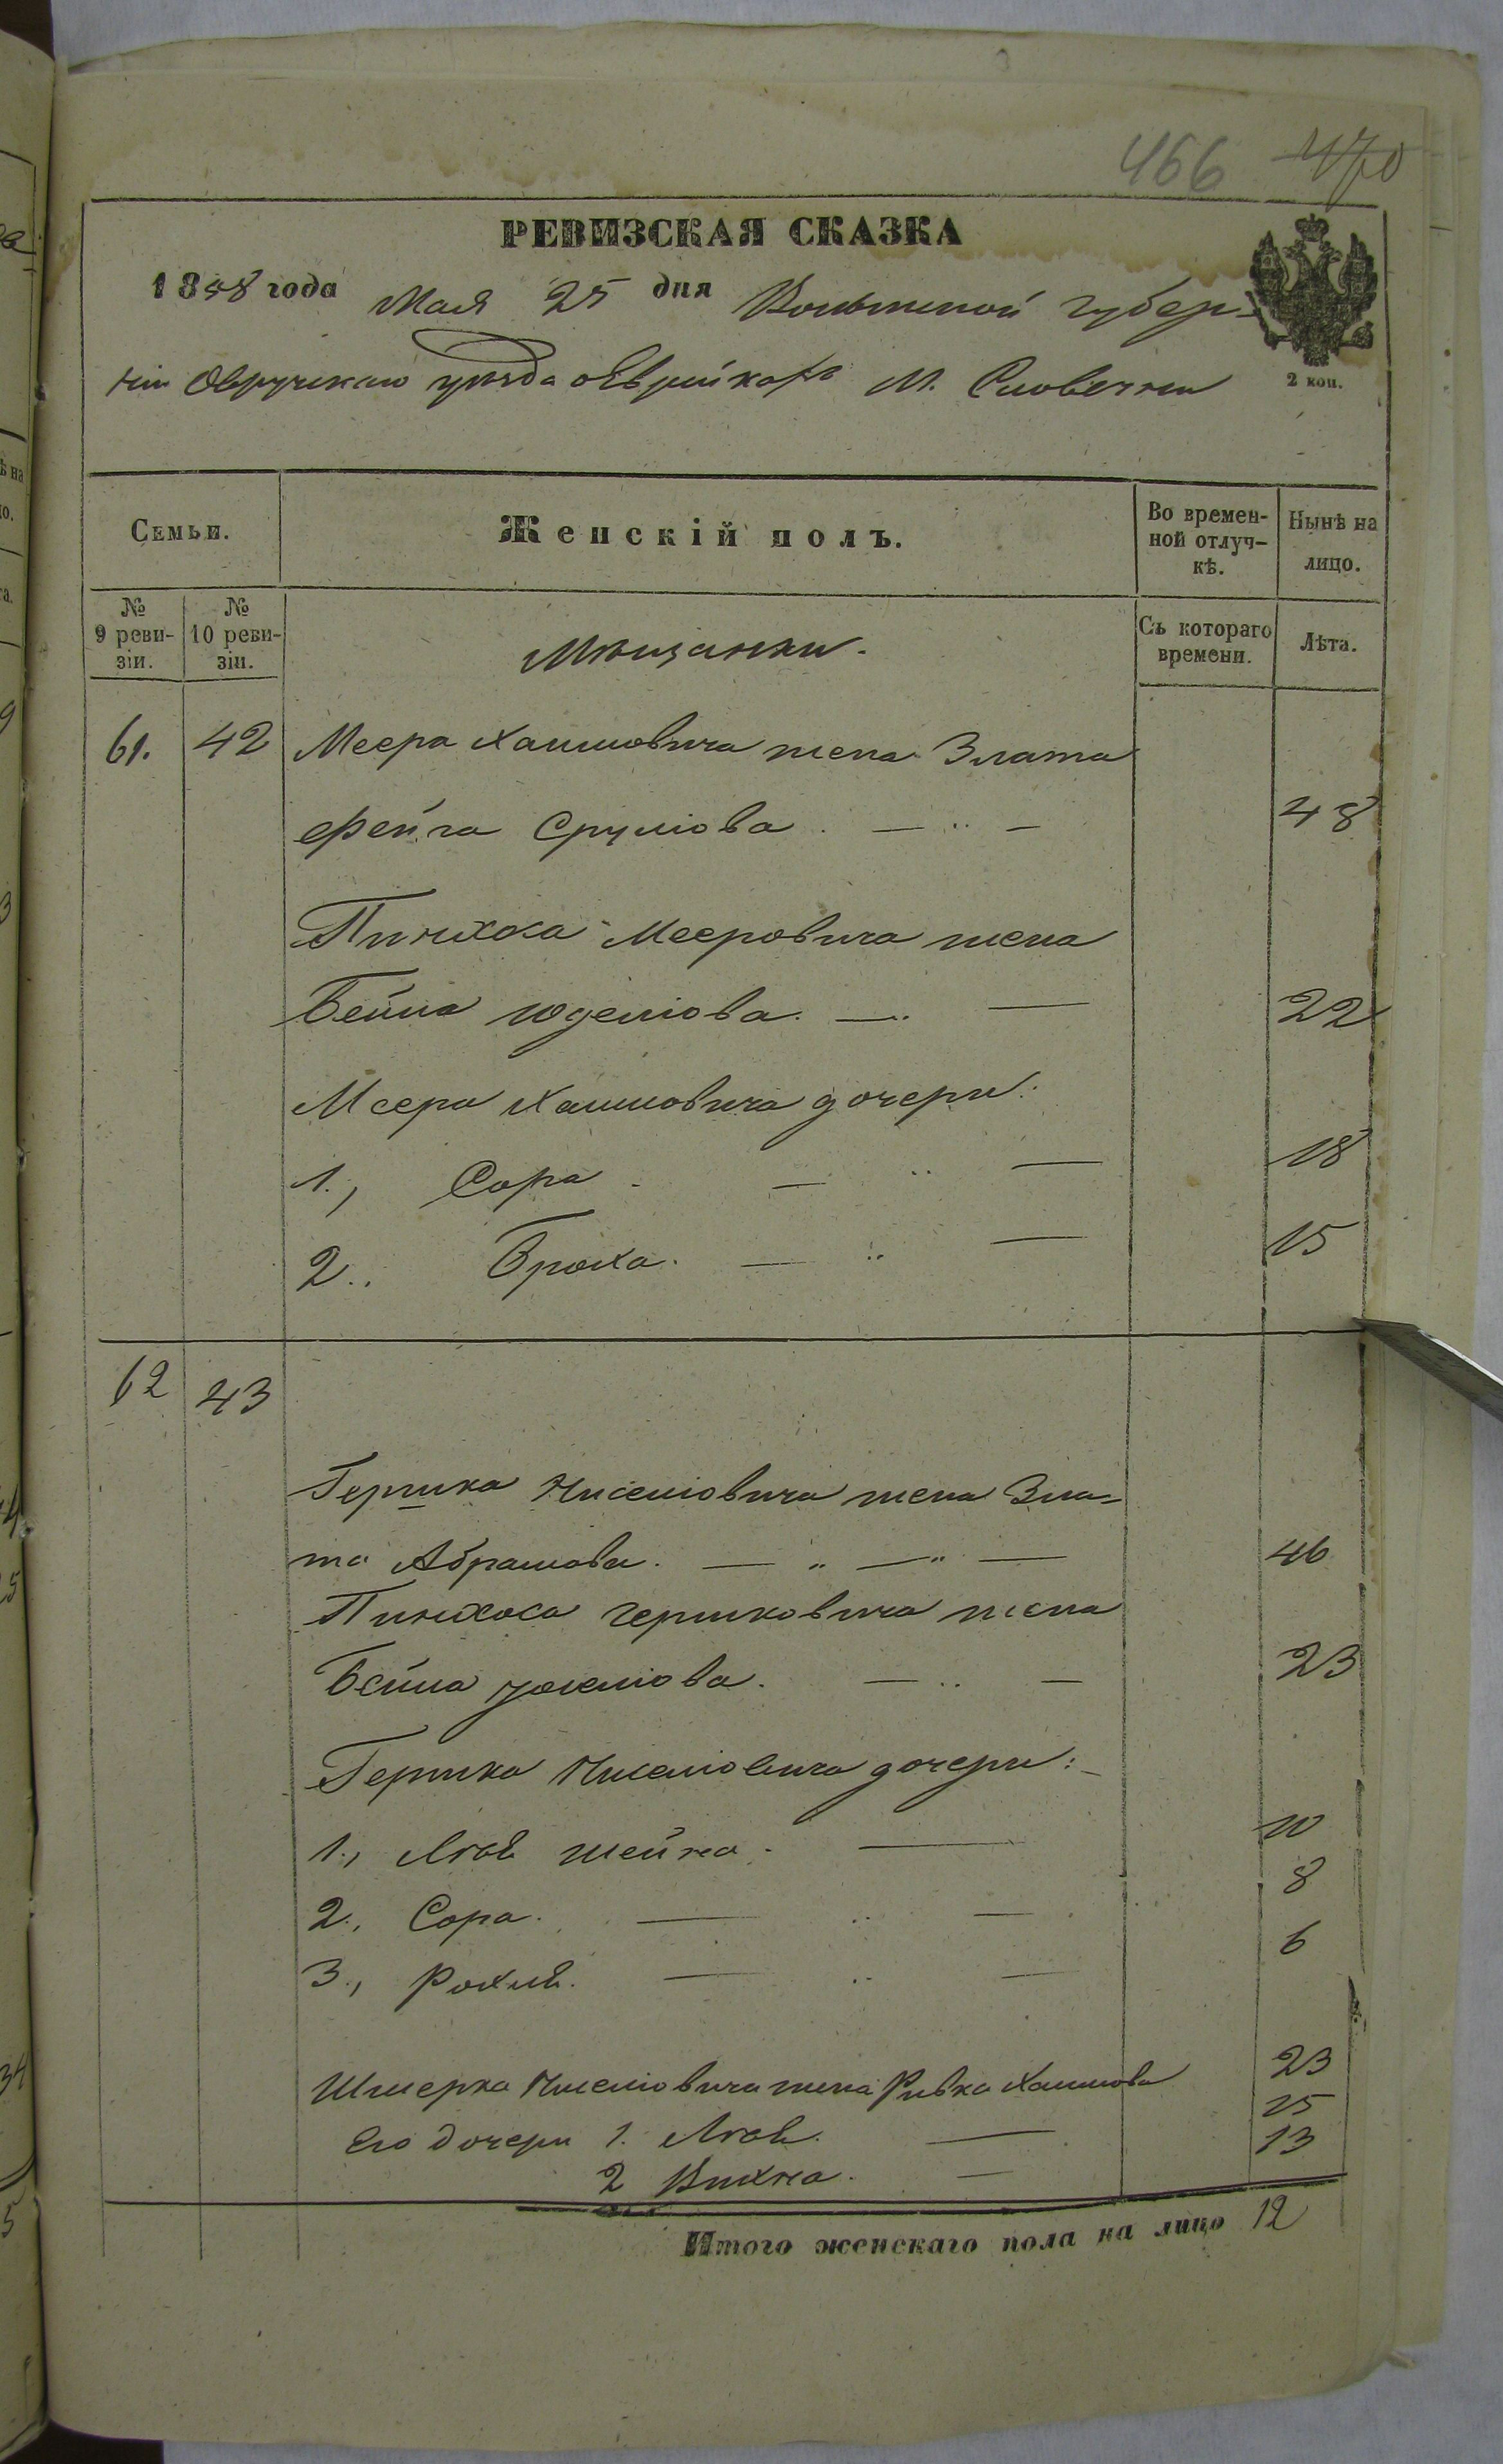 466 470
РЕВИЗСКАЯ СКАЗКА
1858 года Мая 25 дня Волынской губер-
ніи Овручскаго уѣзда о Еврейкахъ М. Словечни
2 коп.
Семьи. Женскій полъ. Во времен-ной отлуч-кѣ. Нынѣ на лицо.
№ 9 реви-зіи. № 10 реви-зіи. Мѣщанки. Съ котораго времени. Лѣта.
61. 42 Меера Хаимовича жена Злата
Фейга Сруліова. 48
Пинхоса Мееровича жена
Бейла Юделіова. 22
Меера Хаимовича дочери:
1., Сора 18
2.. Броха. 15
62 43
Гершка Ниселіовича жена Зла=
та Абрамова. 46
Пинхоса Гершковича жена
Бейла 23
Гершка Ниселіовича дочери:
1., Лея Шейна. 10
2., Сора. 8
3., Рохля. 6
Шмерка Ниселіовича жена Ривка Хаимова 23
Его дочери 1. Лея. 15
2 Вихна. 13
Итого женскаго пола на лицо 12